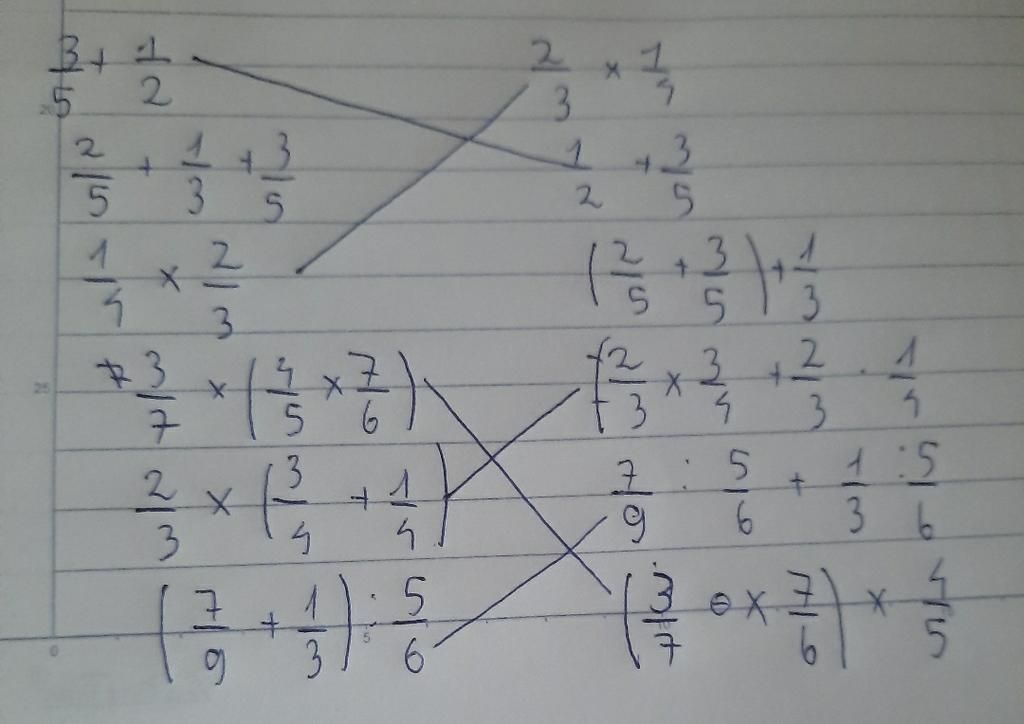 3/5 + 1/2    2/3 × 1/4
2/5 + 1/3 + 3/5    1/2 + 3/5
1/4 × 2/3    (2/5 + 3/5) + 1/3
3/7 × (4/5 × 7/6)    2/3 × 3/4 + 2/3 · 1/4
2/3 × (3/4 + 1/4)    7/9 : 5/6 + 1/3 : 5/6
(7/9 + 1/3) : 5/6    (3/7 × 7/6) × 4/5